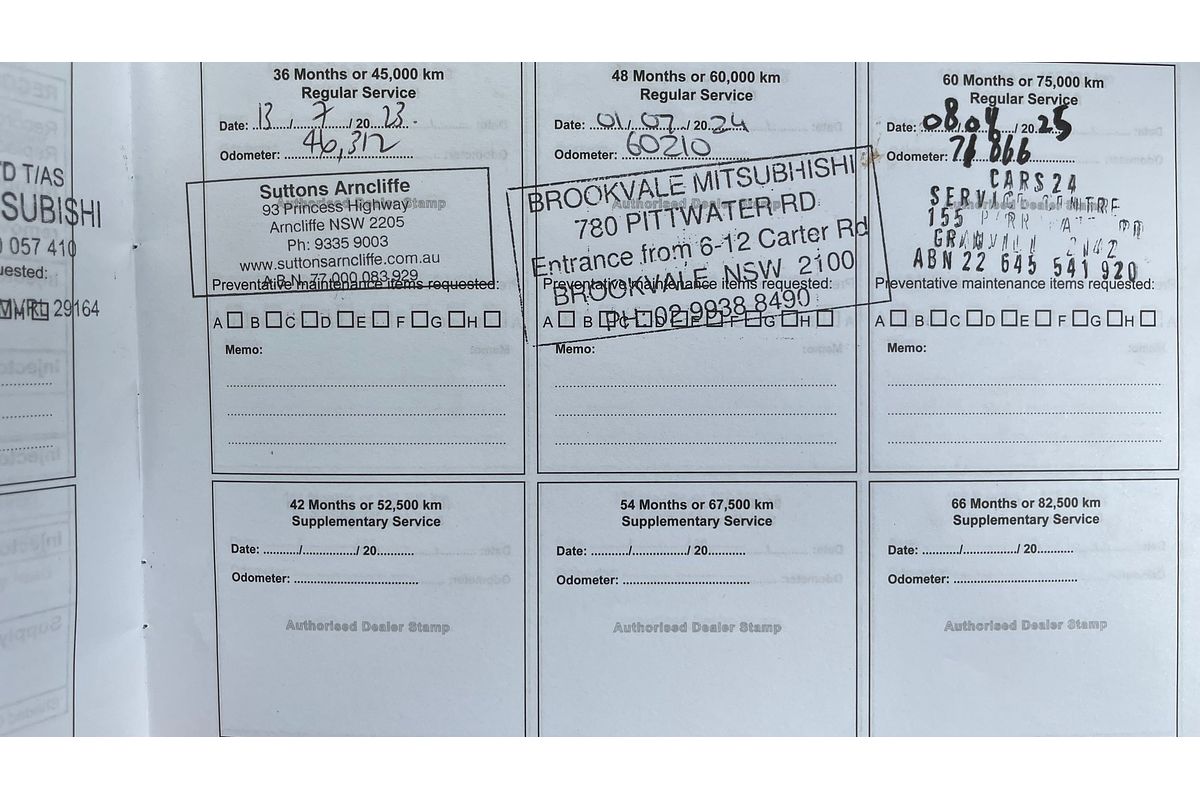 D T/AS
SUBISHI
0 057 410
uested:
29164
36 Months or 45,000 km
Regular Service
Date: 13 / 7 / 20 23
Odometer: 46,312
Suttons Arncliffe
93 Princess Highway
Arncliffe NSW 2205
Ph: 9335 9003
www.suttonsarncliffe.com.au
A.B.N. 77 000 083 929
Authorised Dealer Stamp
Preventative maintenance items requested:
A B C D E F G H
Memo:
48 Months or 60,000 km
Regular Service
Date: 01 / 07 / 20 24
Odometer: 60210
BROOKVALE MITSUBHISHI
780 PITTWATER RD
Entrance from 6-12 Carter Rd
BROOKVALE NSW 2100
PH: 02 9938 8490
Authorised Dealer Stamp
Preventative maintenance items requested:
A B C D E F G H
Memo:
60 Months or 75,000 km
Regular Service
Date: 08 / 04 / 20 25
Odometer: 71 866
CARS24
SERVICE CENTRE
155
2142
ABN 22 645 541 920
Authorised Dealer Stamp
Preventative maintenance items requested:
A B C D E F G H
Memo:
42 Months or 52,500 km
Supplementary Service
Date: ........../............../ 20..........
Odometer: ..................................
Authorised Dealer Stamp
54 Months or 67,500 km
Supplementary Service
Date: ........../............../ 20..........
Odometer: ..................................
Authorised Dealer Stamp
66 Months or 82,500 km
Supplementary Service
Date: ........../............../ 20..........
Odometer: ..................................
Authorised Dealer Stamp